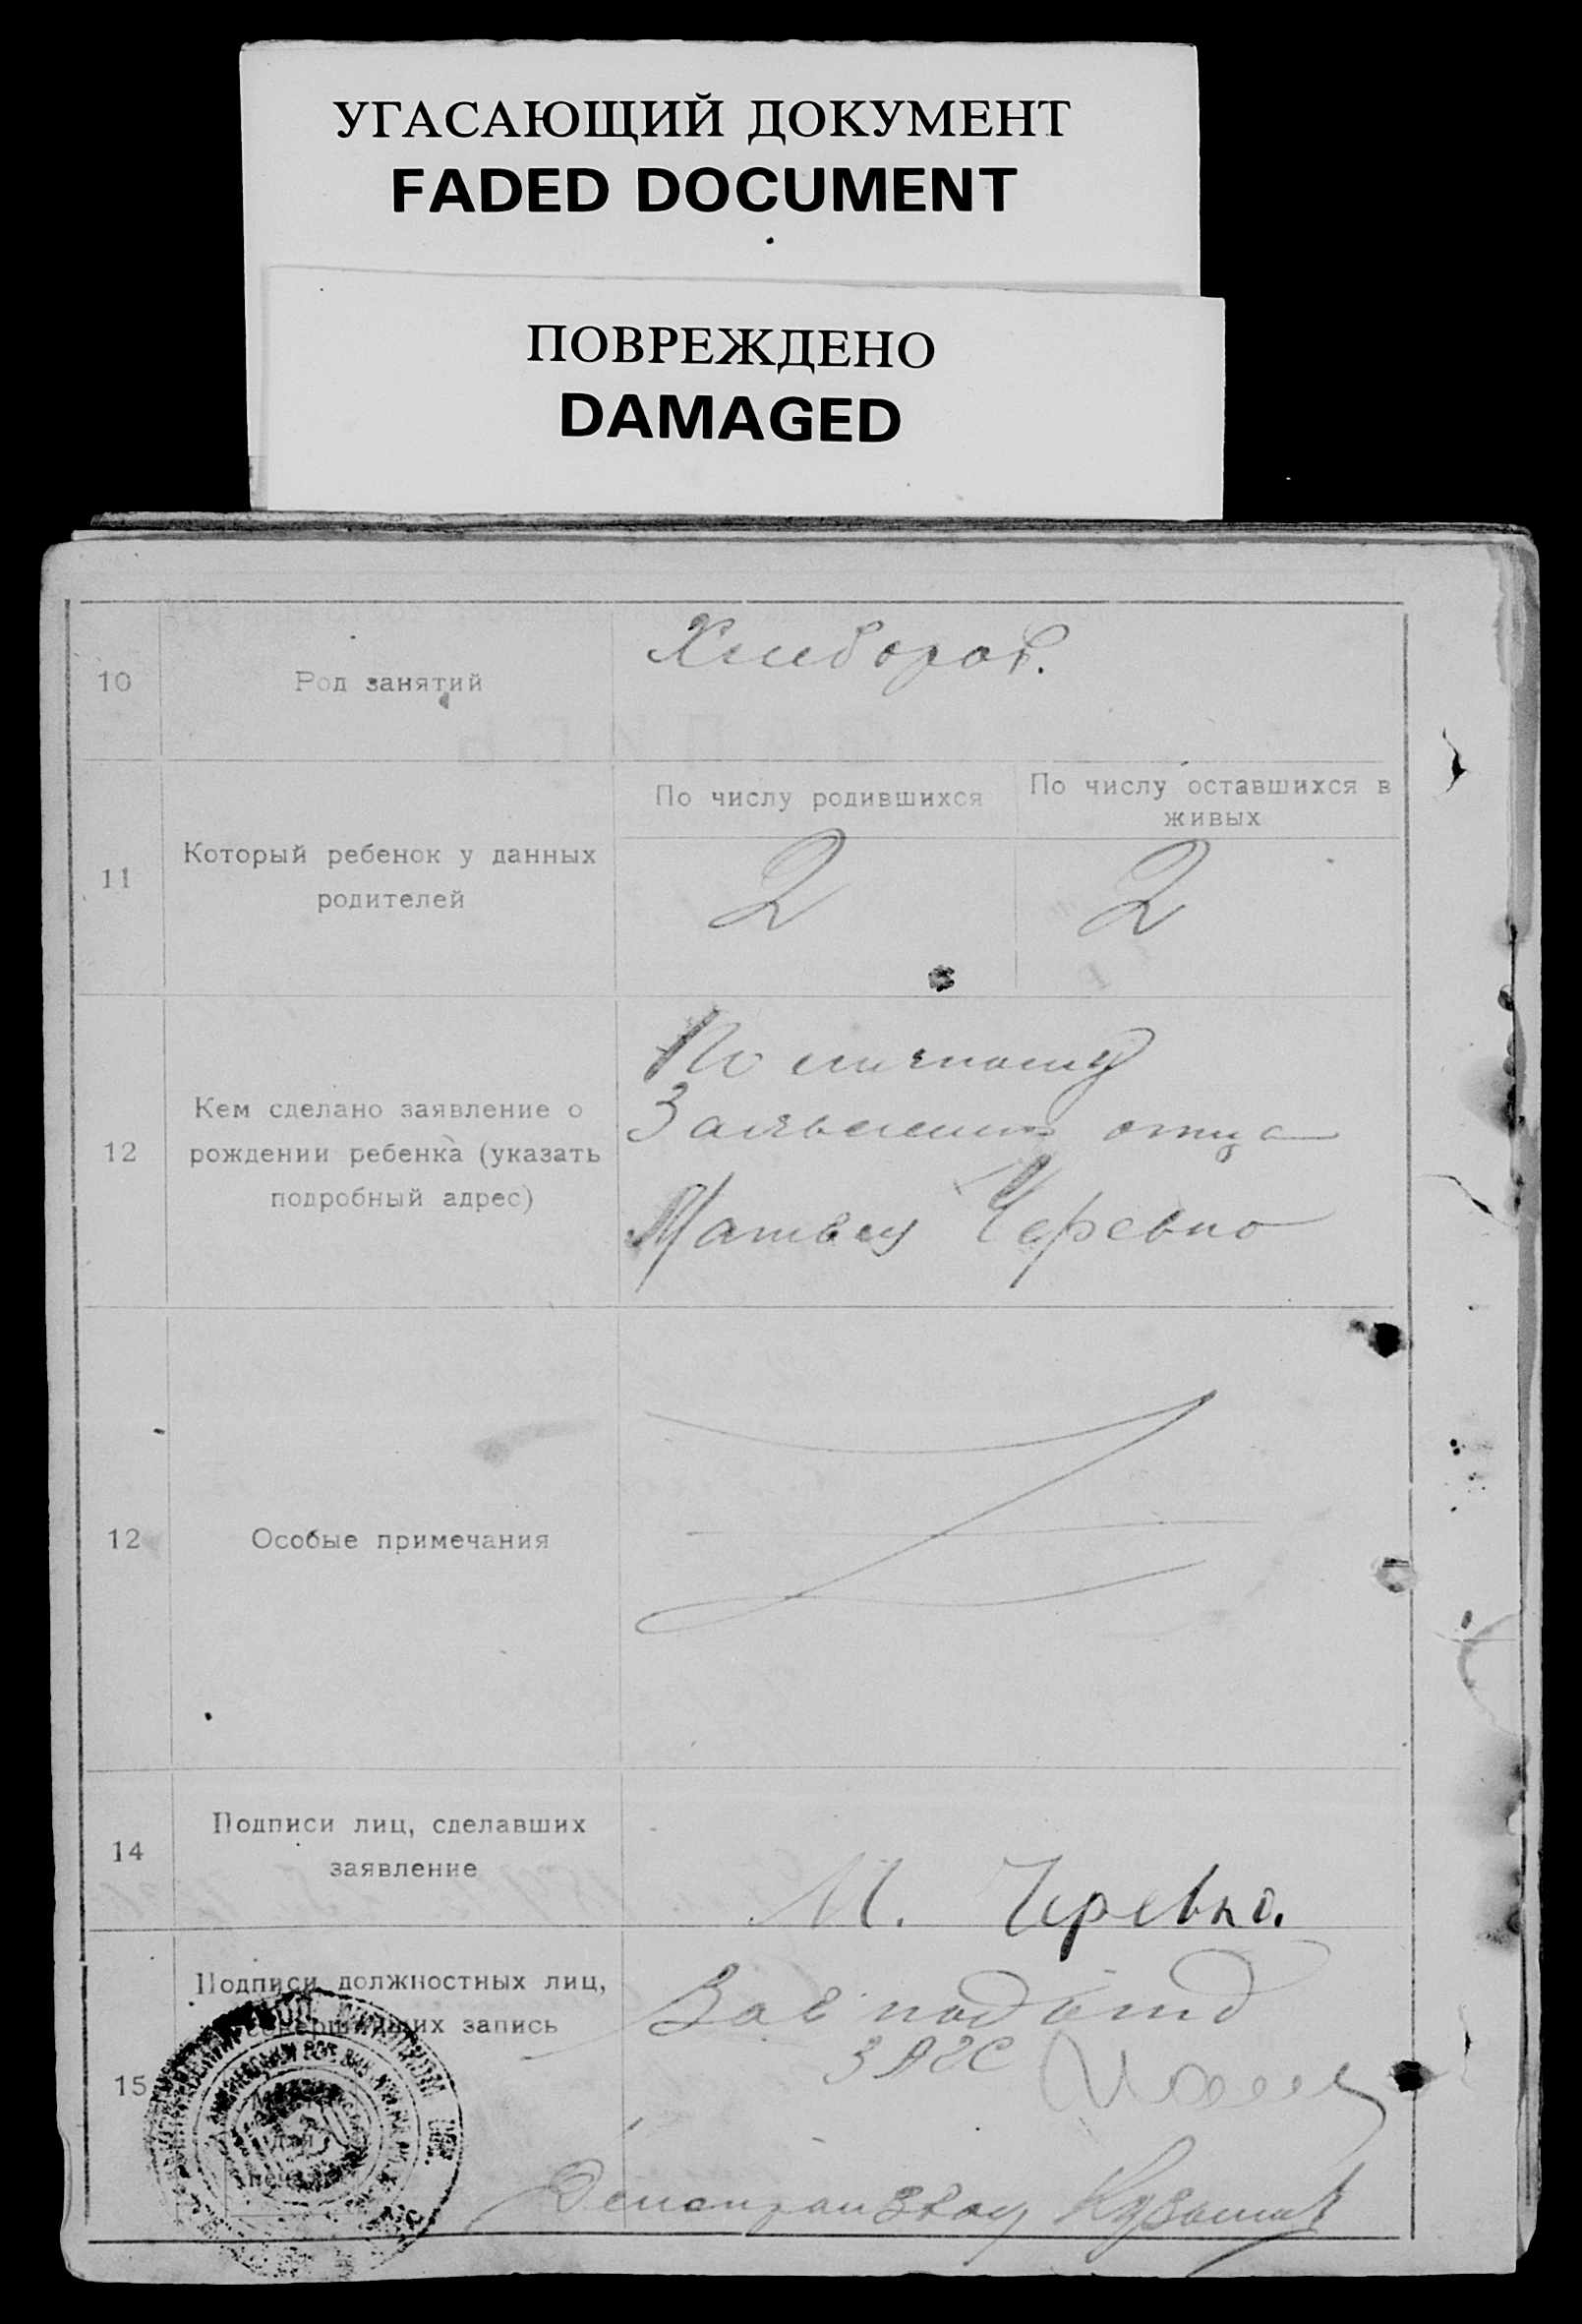 УГАСАЮЩИЙ ДОКУМЕНТ
FADED DOCUMENT
ПОВРЕЖДЕНО
DAMAGED
10
Род занятий
Хлебороб.
11
Который ребенок у данных
родителей
По числу родившихся
2
По числу оставшихся в
живых
2
12
Кем сделано заявление о
рождении ребенка (указать
подробный адрес)
По личному
Заявлению отца
Матвей Черевко
12
Особые примечания
14
Подписи лиц, сделавших
заявление
М. Черевко.
15
Подписи должностных лиц,
совершивших запись
Зав подотд
ЗАГС